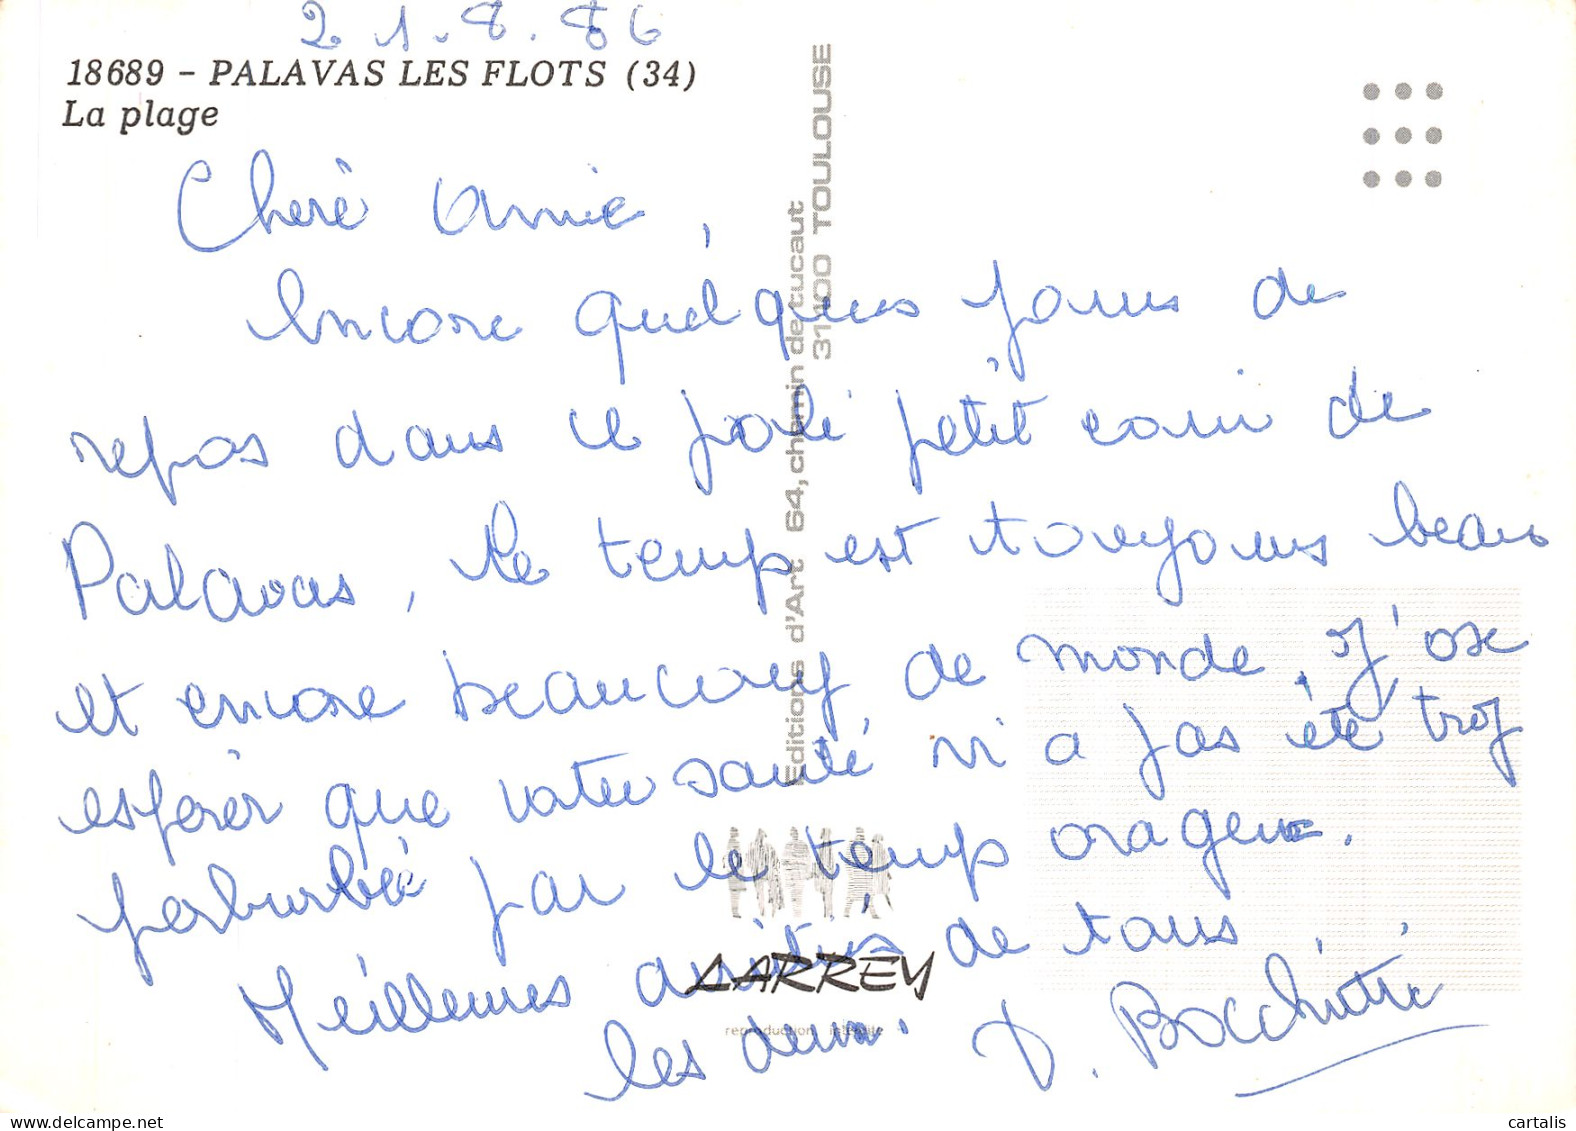 21.8.86
18689 - PALAVAS LES FLOTS (34)
La plage
Chère Annie,
Encore quelques jours de
repos dans ce joli petit coin de
Palavas, le temps est toujours beau
et encore beaucoup de monde, j'ose
espérer que votre santé n'a pas été trop
perturbée par le temps orageux.
Meilleures amitiés de tous
les deux.
Editions d'Art 64, chemin de tucaut
31100 TOULOUSE
LARREY
reproduction interdite
delcampe.net
cartalis